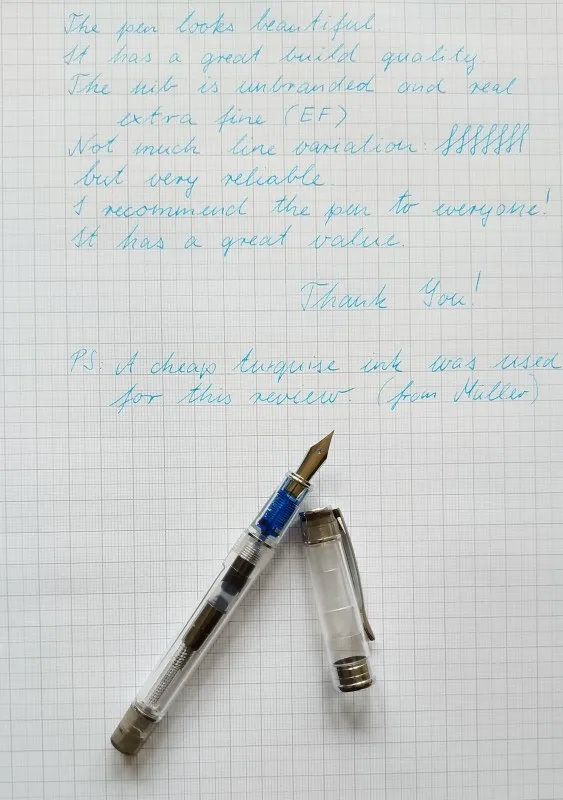 The pen looks beautiful.
It has a great build quality
The nib is unbranded and real
extra fine (EF)
Not much line variation: ∫∫∫∫∫∫∫
but very reliable.
I recommend the pen to everyone!
It has a great value.
Thank You!
PS: A cheap turquise ink was used
for this review. (from Müller)